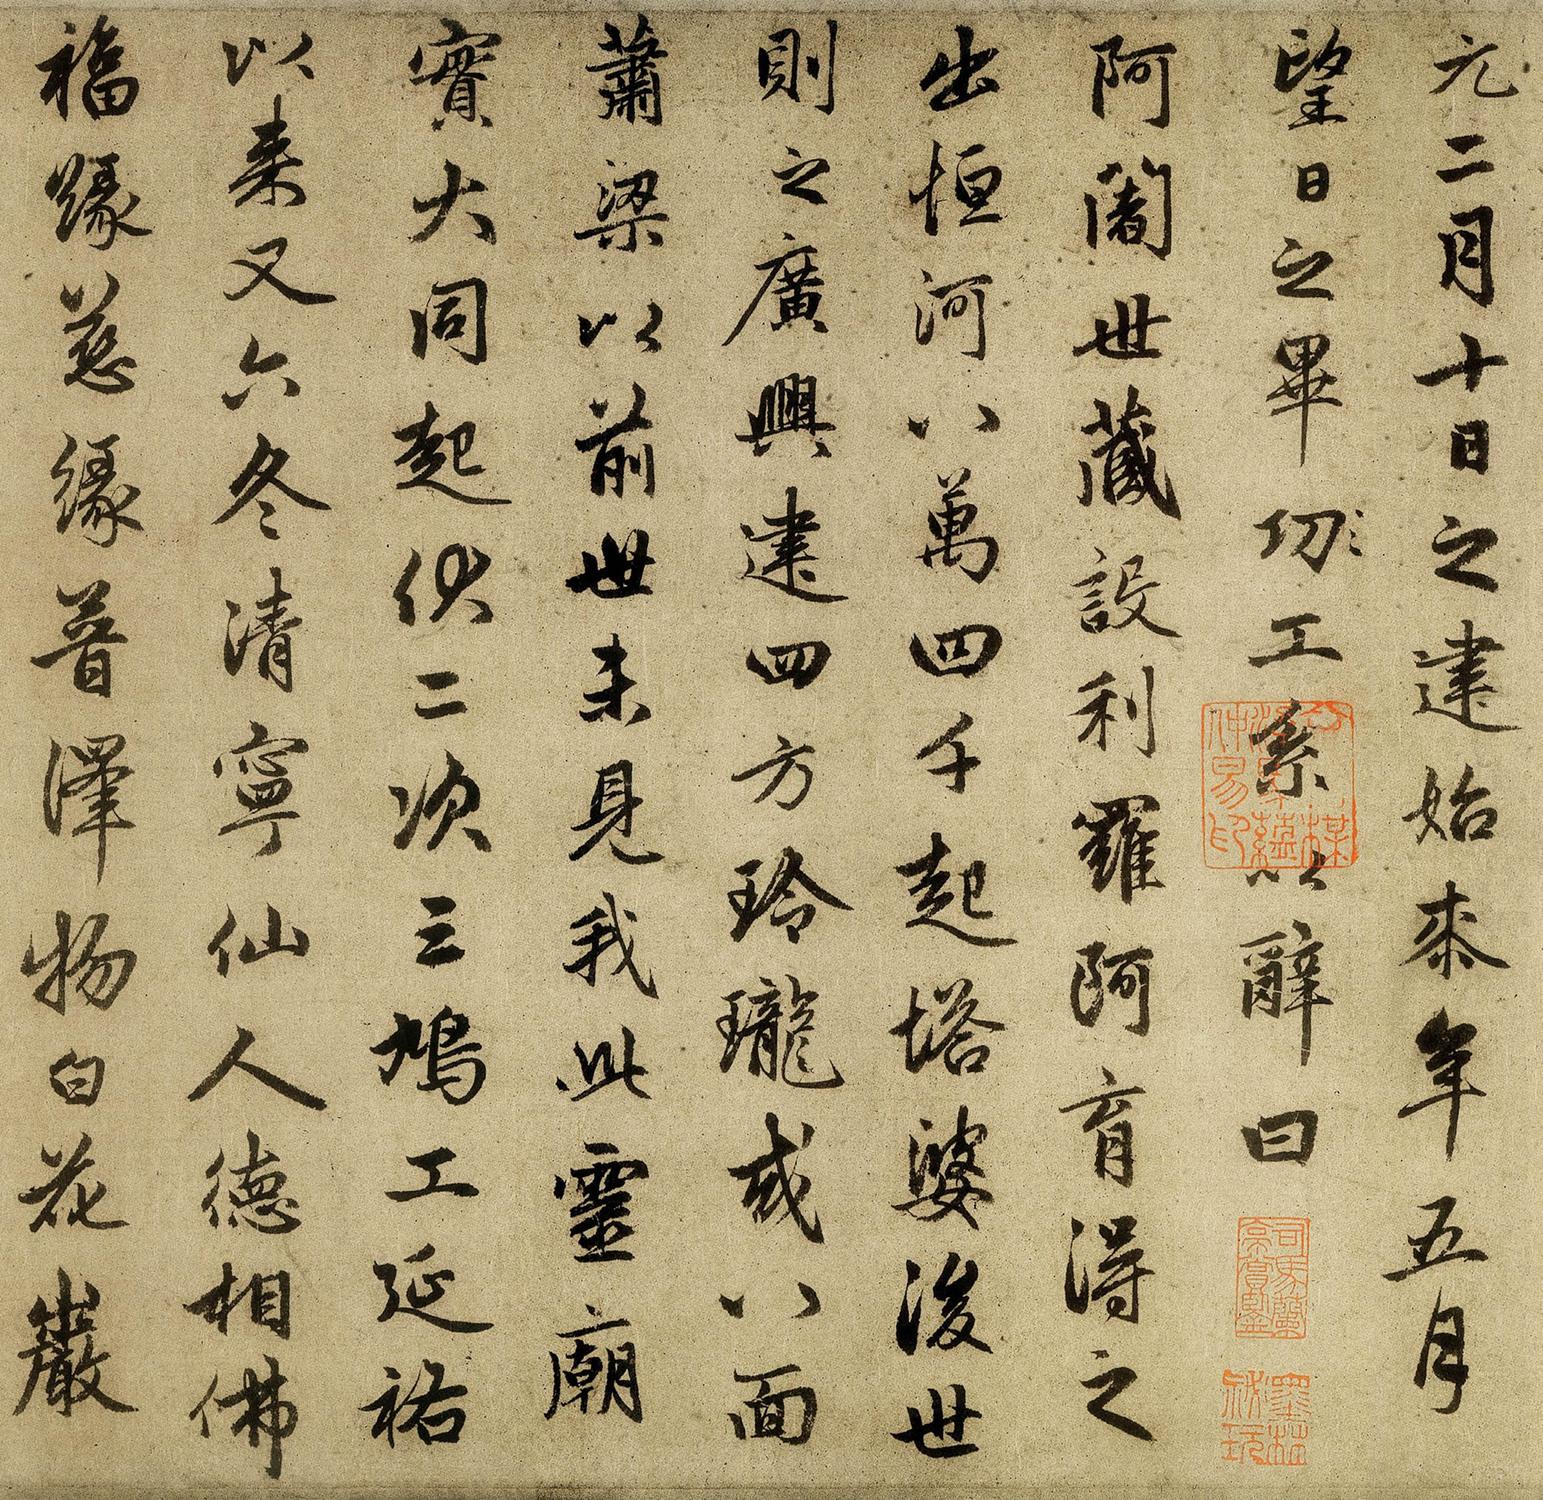 元二月十日之建始來年五月
望日之畢功工系以辭曰
阿闍世藏設利羅阿育得之
出恒河八萬四千起塔婆後世
則之廣興建四方玲瓏或八面
蕭梁以前世未見我此靈廟
寶大同起伏二次三鳩工延祐
以来又六冬清寧仙人德相佛
福緣慈緣普澤物白花巖